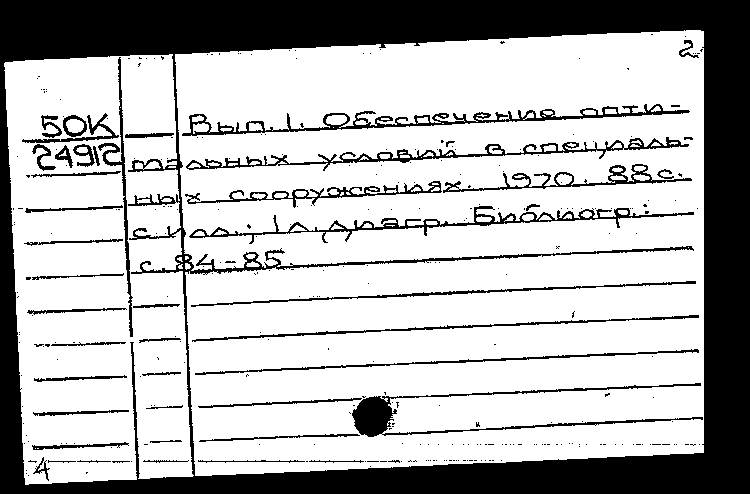 2
50К
24912
Вып. 1. Обеспечение опти-
мальных условий в специаль-
ных сооружениях. 1970. 88 с.
с ил.; 1 л. диагр. Библиогр.:
с. 84-85.
4